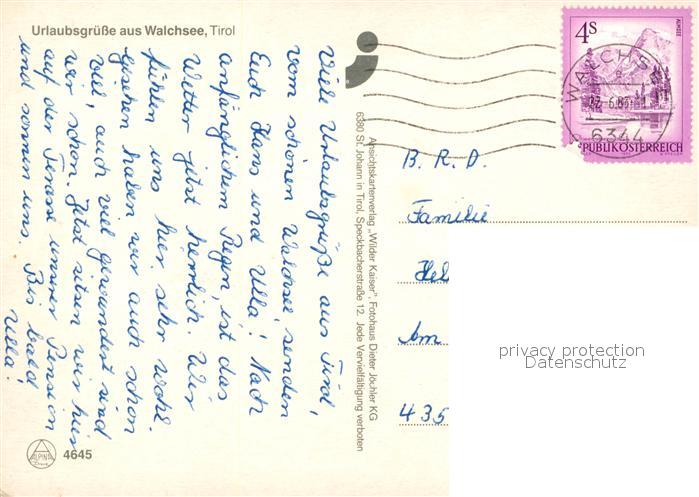 Urlaubsgrüße aus Walchsee, Tirol
Viele Urlaubsgrüße aus Tirol,
vom schönen Walchsee senden
Euch Hans und Ulla! Nach
anfänglichem Regen, ist das
Wetter jetzt herrlich. Wir
fühlen uns hier sehr wohl.
Gesehen haben wir auch schon
viel, auch viel gewandert sind
wir schon. Jetzt sitzen wir hier
auf der Terasse unserer Pension
und sonnen uns. Bis bald
Ulla!
ALPINA
4645
Ansichtskartenverlag „Wilder Kaiser" Fotohaus Dieter Jöchler KG
6380 St. Johann in Tirol, Speckbacherstraße 12. Jede Vervielfältigung verboten
4S
ALMSEE
REPUBLIK ÖSTERREICH
WALCHSEE
6344
B. R. D.
Familie
Hel
Am
435
privacy protection
Datenschutz